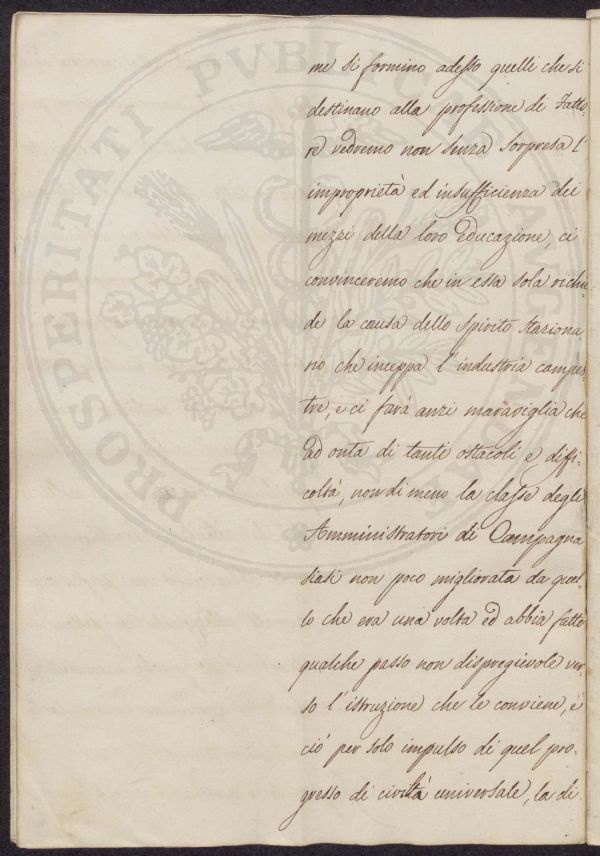 me si formino adesso quelli che si
destinano alla professione di Fatto-
re vedremo non senza sorpresa l'
improprietà ed insufficienza dei
mezzi della loro Educazione, ci
convinceremo che in essa sola richiu-
de la causa dello spirito staziona
rio che inceppa l'industria campes-
tre, e ci farà anzi maraviglia che
ad onta di tanti ostacoli e diffi-
coltà, non di meno la classe degli
Amministratori di Campagna
siasi non poco migliorata da quel-
lo che era una volta ed abbia fatto
qualche passo non dispregievole ver-
so l'istruzione che le conviene, e
ciò per solo impulso di quel pro-
gresso di civiltà universale, la di
PROSPERITATI PVBLICAE